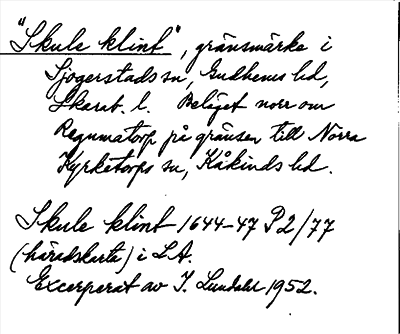 "Skule klint", gränsmärke i
Sjogerstads sn, Gudhems hd,
Skarab. l. Beläget norr om
Regumatorp på gränsen till Norra
Kyrketorps sn, Kåkinds hd.
Skule klint 1644-47 P2/77
(häradskarta) i LA.
Excerperat av I. Lundahl 1952.